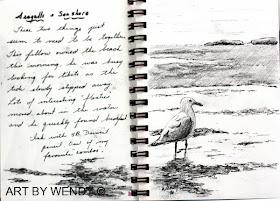 Seagulls & Seashore
These two things just
seem to need to be together.
This fellow owned the beach
this morning, he was busy
looking for titbits as the
tide slowly slipped away.
Lots of interesting floaties
moved about in the water
and he quickly found breakfast
Ink with 4B Derwent
pencil one of my
favourite combos.
ART BY WENDY ©